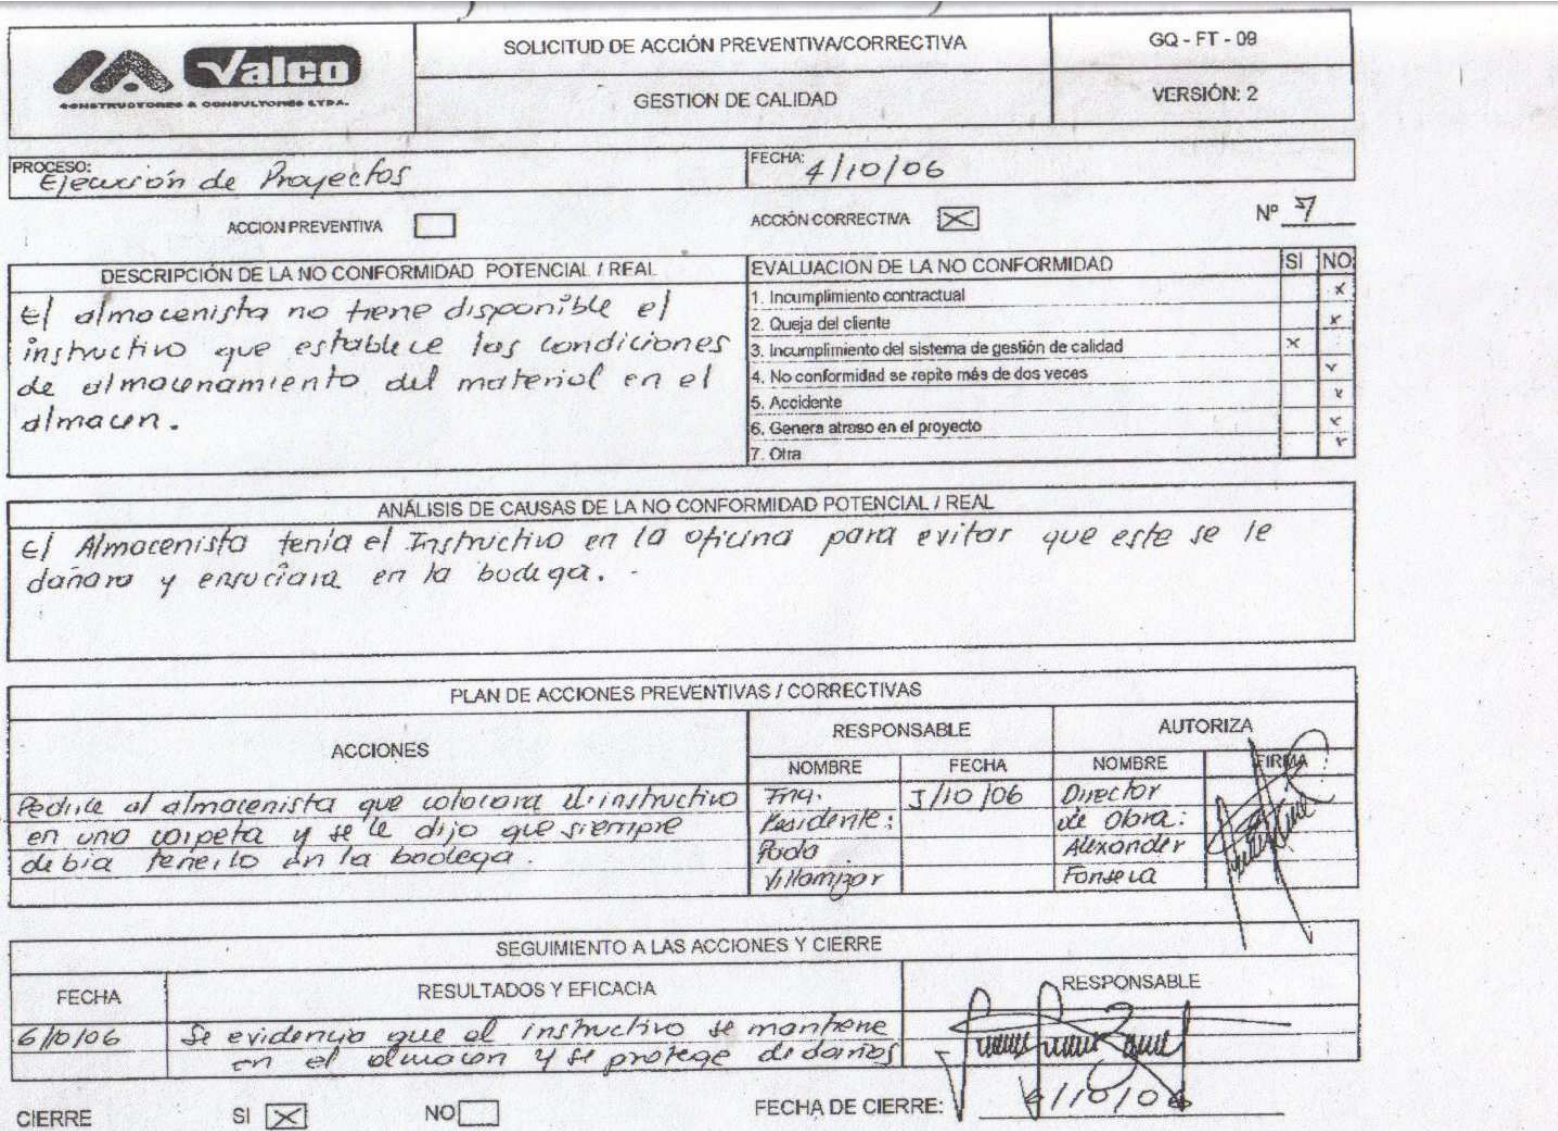 Valco
CONSTRUCTORES & CONSULTORES LTDA.
SOLICITUD DE ACCIÓN PREVENTIVA/CORRECTIVA
GESTION DE CALIDAD
GQ - FT - 09
VERSIÓN: 2
PROCESO: Ejecución de Proyectos
FECHA: 4/10/06
ACCION PREVENTIVA
ACCIÓN CORRECTIVA X
Nº 7
DESCRIPCIÓN DE LA NO CONFORMIDAD POTENCIAL / REAL
El almacenista no tiene disponible el
instructivo que establece las condiciones
de almacenamiento del material en el
almacen.
EVALUACION DE LA NO CONFORMIDAD SI NO
1. Incumplimiento contractual x
2. Queja del cliente x
3. Incumplimiento del sistema de gestión de calidad x
4. No conformidad se repite más de dos veces x
5. Accidente x
6. Genera atraso en el proyecto x
7. Otra x
ANÁLISIS DE CAUSAS DE LA NO CONFORMIDAD POTENCIAL / REAL
El Almacenista tenía el Instructivo en la oficina para evitar que este se le
dañara y ensuciara en la bodega.
PLAN DE ACCIONES PREVENTIVAS / CORRECTIVAS
ACCIONES
RESPONSABLE
AUTORIZA
NOMBRE
FECHA
NOMBRE
FIRMA
al almacenista que colocara el instructivo
en una carpeta y se le dijo que siempre
debia tenerlo en la bodega.
Ing.
Residente:
Villamizar
5/10/06
Director
de Obra:
Alexander
Fonseca
SEGUIMIENTO A LAS ACCIONES Y CIERRE
FECHA
RESULTADOS Y EFICACIA
RESPONSABLE
6/10/06
Se evidencia que el instructivo se mantiene
en el almacen y se protege de daños
CIERRE SI X NO
FECHA DE CIERRE: 6/10/06